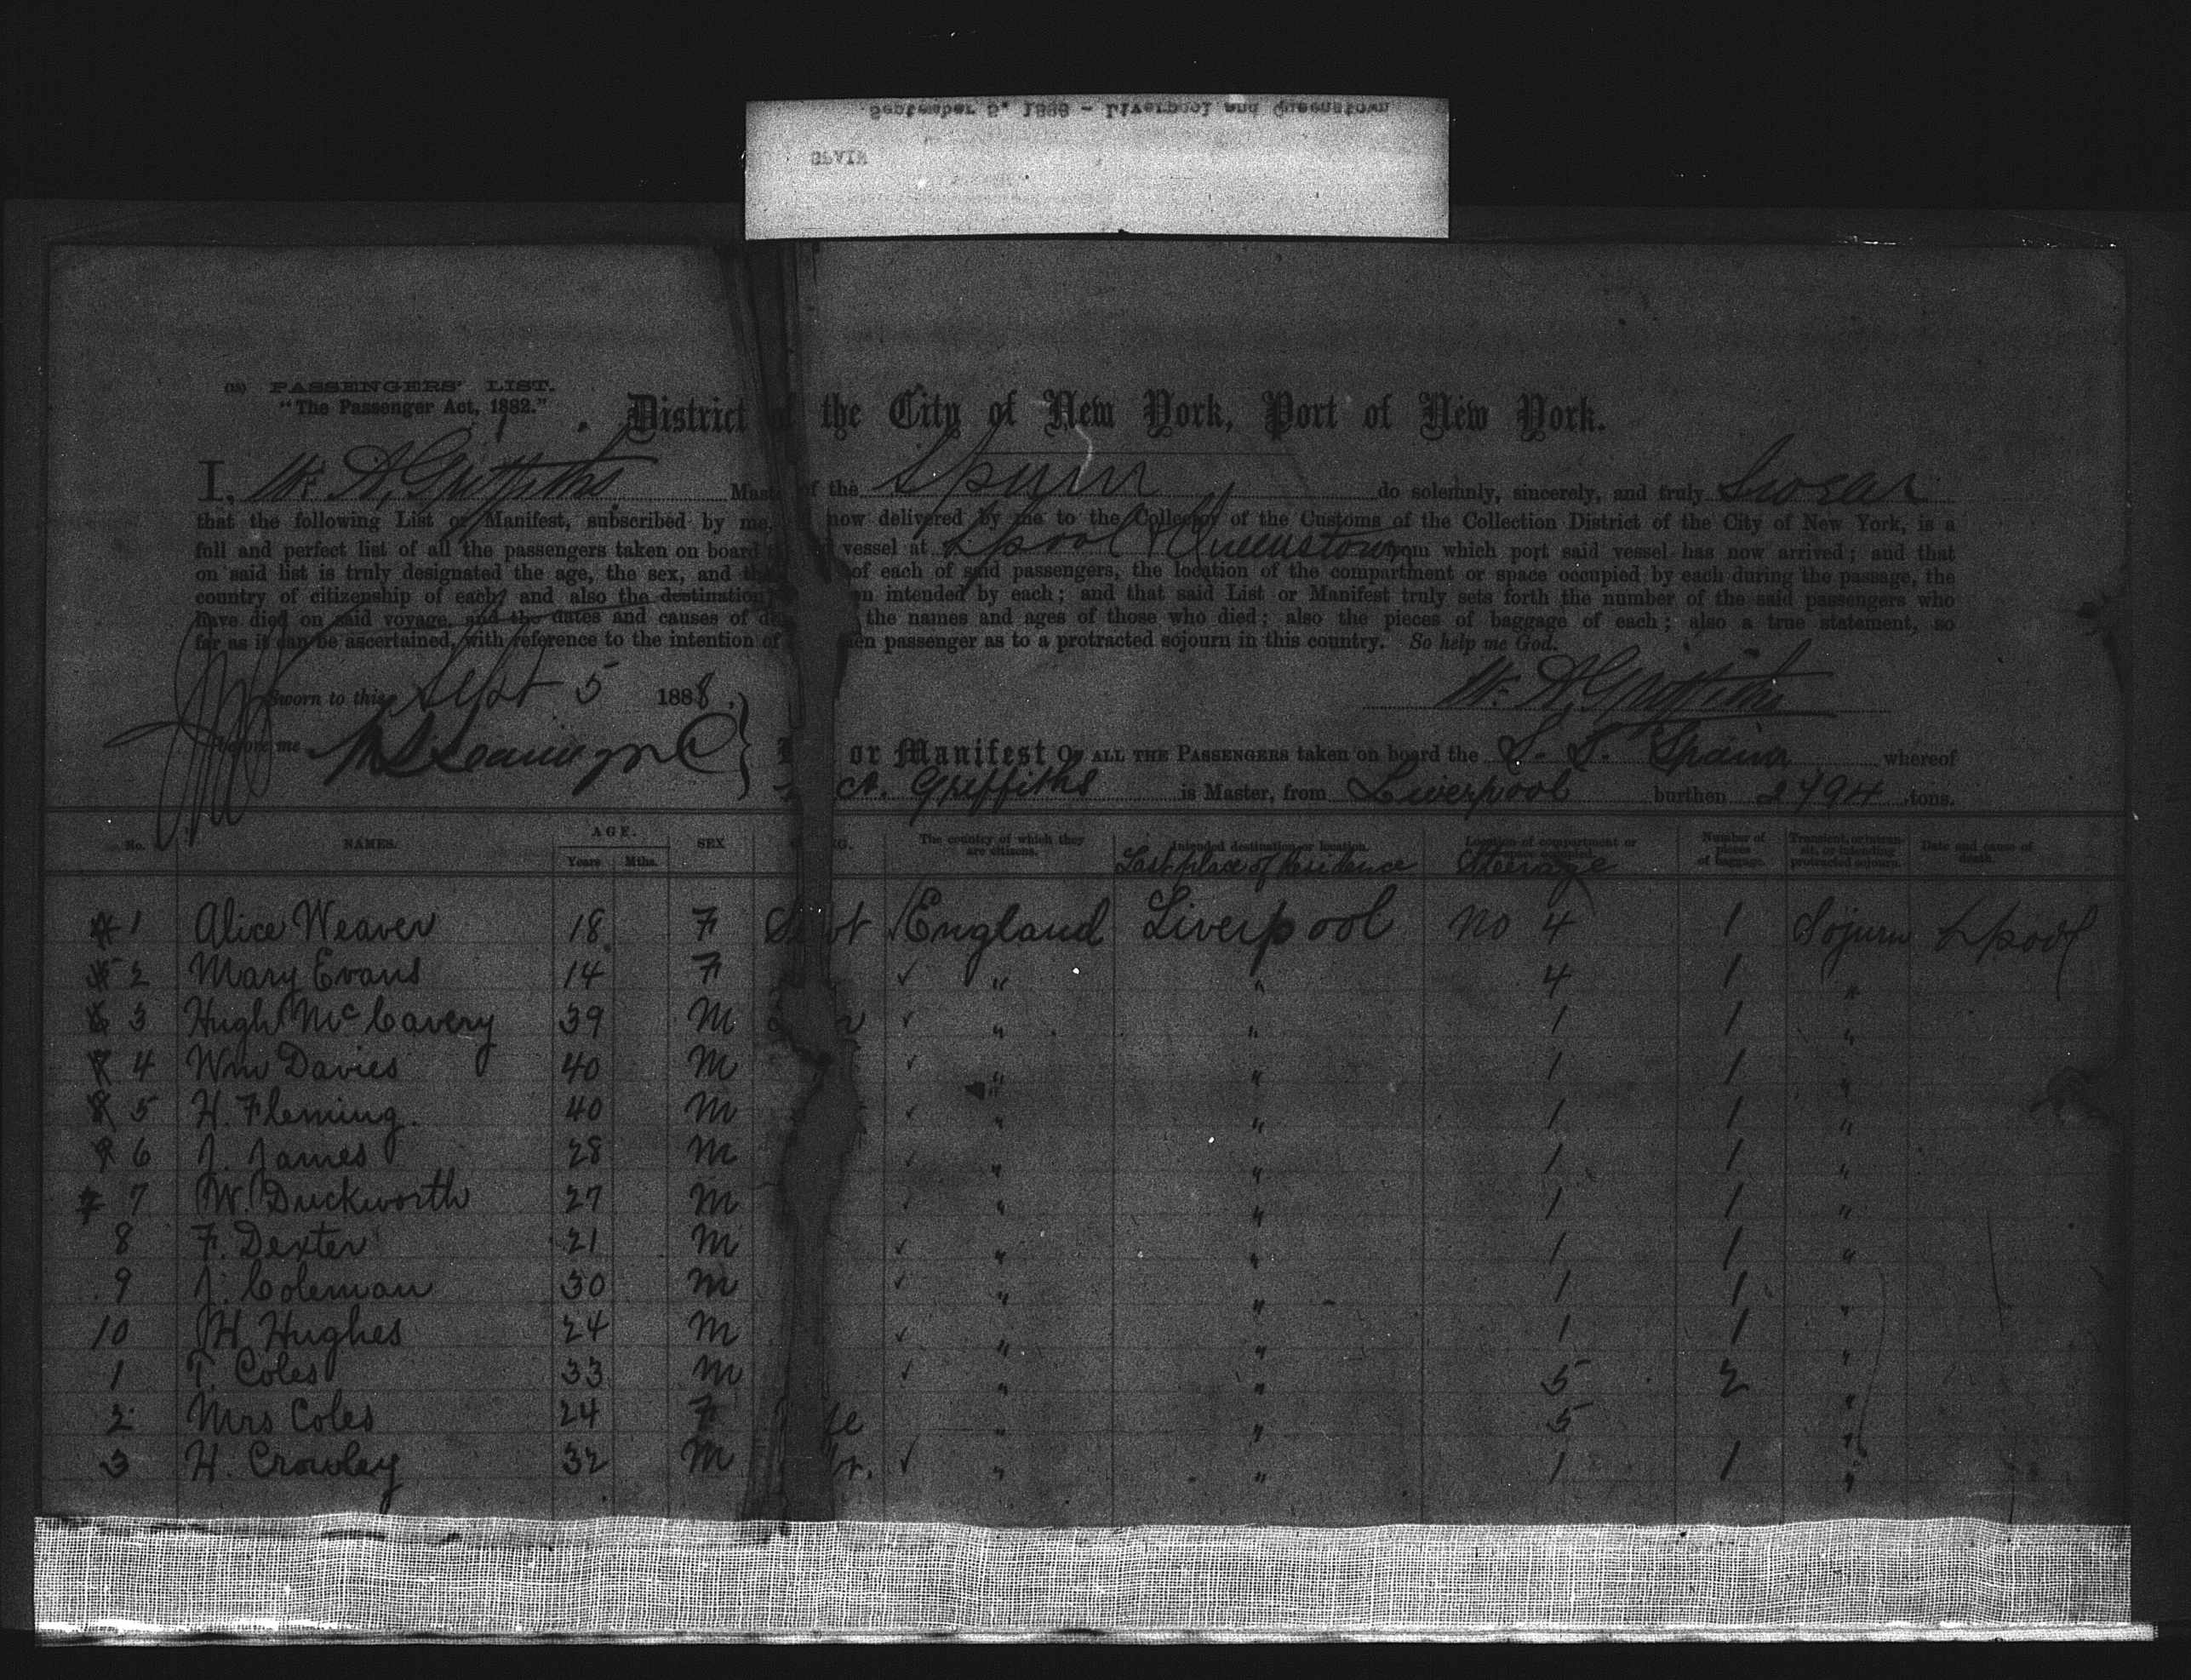 September 5, 1888 - Liverpool and Queenstown
SPAIN
(15) PASSENGERS' LIST.
"The Passenger Act, 1882."
District of the City of New York, Port of New York.
I, W. A. Griffiths Master of the Spain do solemnly, sincerely, and truly Swear
that the following List or Manifest, subscribed by me, now delivered by me to the Collector of the Customs of the Collection District of the City of New York, is a
full and perfect list of all the passengers taken on board vessel at Lpool & Queenstown from which port said vessel has now arrived; and that
on said list is truly designated the age, the sex, and the of each of said passengers, the location of the compartment or space occupied by each during the passage, the
country of citizenship of each, and also the destination intended by each; and that said List or Manifest truly sets forth the number of the said passengers who
have died on said voyage, and the dates and causes of the names and ages of those who died; also the pieces of baggage of each; also a true statement, so
far as it can be ascertained, with reference to the intention of passenger as to a protracted sojourn in this country. So help me God.
W. A. Griffiths
Sworn to this Sept 5 1888.
before me
or Manifest OF ALL THE PASSENGERS taken on board the S. S. Spain whereof
A. Griffiths is Master, from Liverpool burthen tons.
No. NAMES. AGE. Years Mths. SEX The country of which they are citizens. Intended destination or location. Location of compartment or Number of pieces of baggage. Transient, or in transit, or intending protracted sojourn. Date and cause of death.
Last place of Residence Steerage
1 Alice Weaver 18 F England Liverpool No 4 1 Sojurn Lpool
2 Mary Evans 14 F " " 4 1 "
3 Hugh McCavery 39 M " " 1 1 "
4 Wm Davies 40 M " " 1 1 "
5 H. Fleming 40 M " " 1 1 "
6 J. James 28 M " " 1 1 "
7 W. Duckworth 27 M " " 1 1 "
8 F. Dexter 21 M " " 1 1 "
9 J. Coleman 30 M " " 1 1 "
10 H. Hughes 24 M " " 1 1 "
1 T. Coles 33 M " " 5 2 "
2 Mrs Coles 24 F " " 5 "
3 H. Crowley 32 M " " 1 1 "